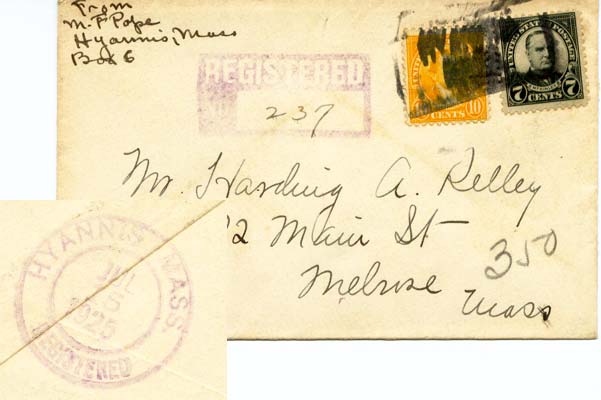 From
M. F Pope
Hyannis, Mass
Box 6
REGISTERED
237
10
CENTS
UNITED STATES POSTAGE
7 CENTS 7
Mr. Harding A. Kelley
2 Main St
Melrose
Mass
350
HYANNIS MASS.
JUL
5
1925
REGISTERED